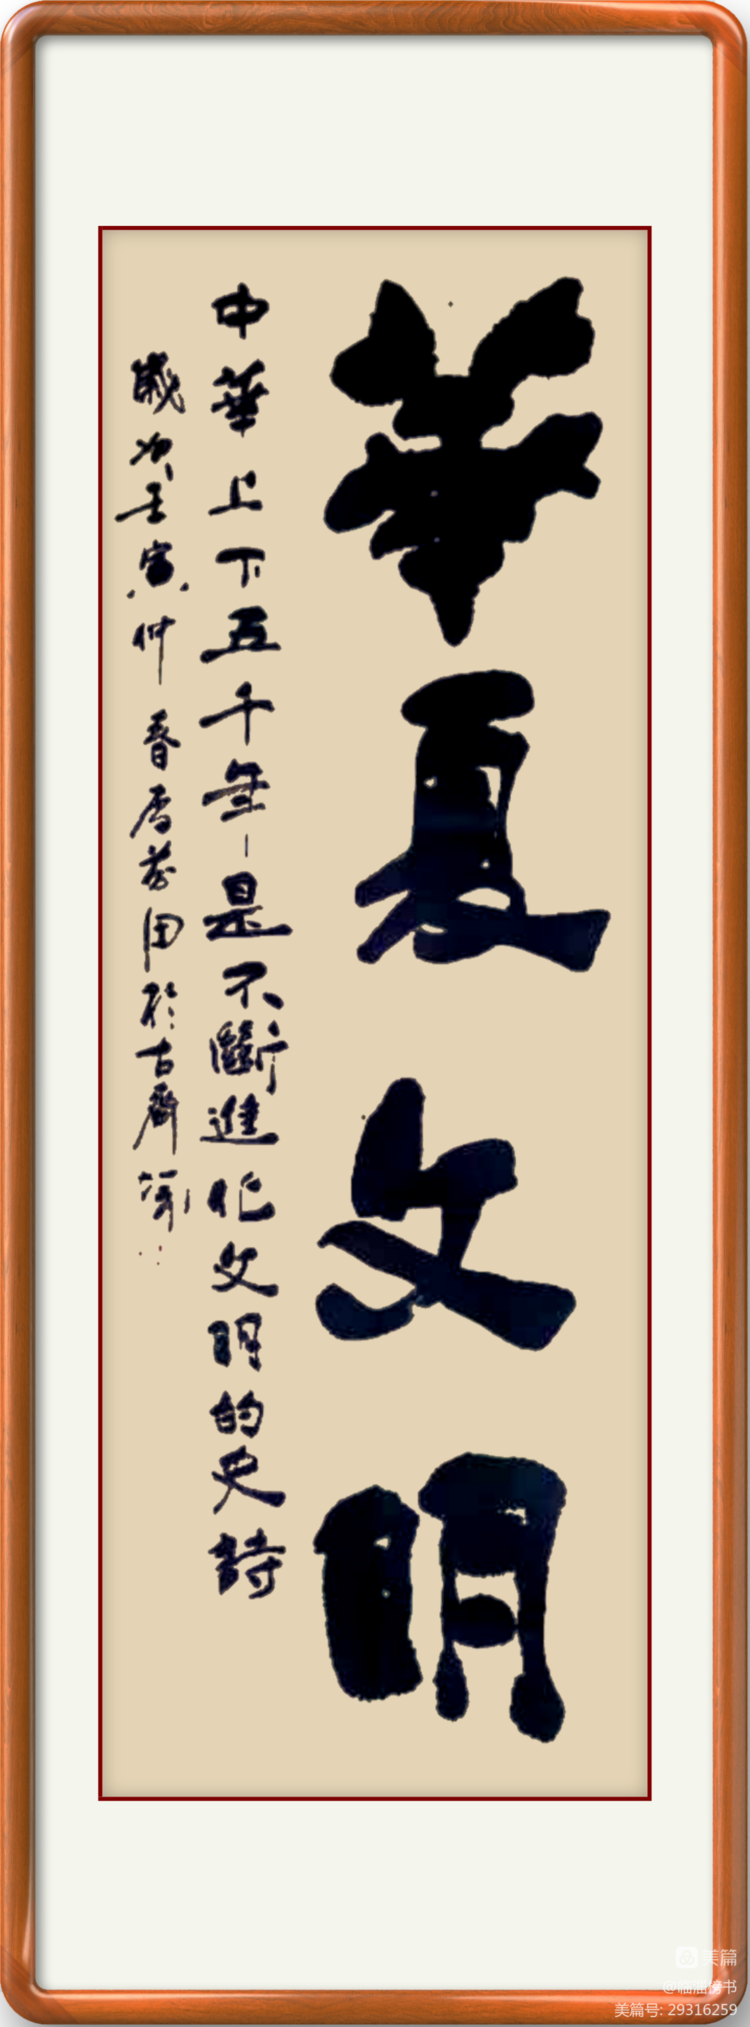 華夏文明
中華上下五千年是不斷進化文明的史詩
歲次壬寅仲春 田於古齊
美篇
@临淄傍书
美篇号: 29316259